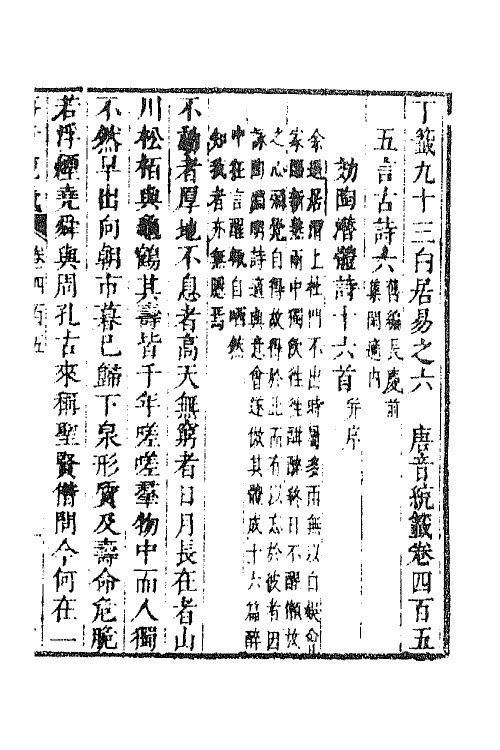 丁籤九十三白居易之六　唐音統籤卷四百五
五言古詩六舊編長慶前
集閒適內
効陶潛體詩十六首并序
余退居渭上杜門不出時屬多雨無以自娛會
家醞新熟雨中獨飲往往酣醉終日不醒懶放
之心彌覺自得故得於此而有以忘於彼者因
詠陶淵明詩適與意會遂倣其體成十六篇醉
中狂言醒輒自哂然
知我者亦無隱焉
不動者厚地不息者高天無窮者日月長在者山
川松栢與龜鶴其壽皆千年嗟嗟羣物中而人獨
不然早出向朝市暮已歸下泉形質及壽命危脆
若浮煙堯舜與周孔古來稱聖賢借問今何在一
卷四百五